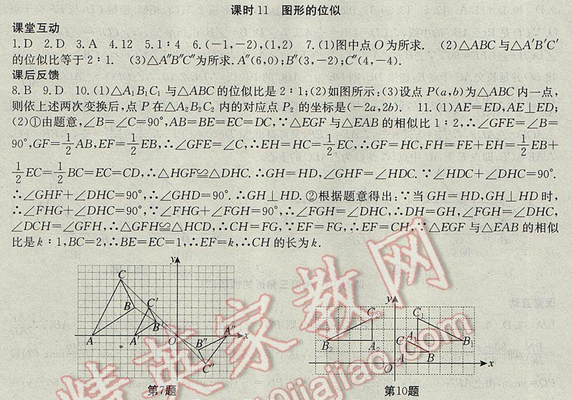 课时11 图形的位似
课堂互动
1. D 2. D 3. A 4. 12 5. 1∶4 6. (-1,-2),(1,2) 7. (1)图中点O为所求. (2)△ABC与△A'B'C'
的位似比等于2∶1. (3)△A″B″C″为所求. A″(6,0);B″(3,-2);C″(4,-4).
课后反馈
8. B 9. D 10. (1)△A₁B₁C₁与△ABC的位似比是2∶1;(2)如图所示;(3)设点P(a,b)为△ABC内一点,
则依上述两次变换后,点P在△A₂B₂C₂内的对应点P₂的坐标是(-2a,2b). 11. (1)AE=ED,AE⊥ED;
(2)①由题意,∠B=∠C=90°,AB=BE=EC=DC,∵△EGF与△EAB的相似比1∶2,∴∠GFE=∠B=
90°,GF=1/2AB,EF=1/2EB,∴∠GFE=∠C,∴EH=HC=1/2EC,∴GF=HC,FH=FE+EH=1/2EB+
1/2EC=1/2BC=EC=CD,∴△HGF≌△DHC.∴GH=HD,∠GHF=∠HDC.∵∠HDC+∠DHC=90°.
∴∠GHF+∠DHC=90°,∴∠GHD=90°.∴GH⊥HD.②根据题意得出:∵当GH=HD,GH⊥HD时,
∴∠FHG+∠DHC=90°,∵∠FHG+∠FGH=90°,∴∠FGH=∠DHC,∴DH=GH,∠FGH=∠DHC,
∠DCH=∠GFH,∴△GFH≌△HCD,∴CH=FG,∵EF=FG,∴EF=CH,∵△EGF与△EAB的相似
比是k∶1,BC=2,∴BE=EC=1,∴EF=k,∴CH的长为k.
第7题
第10题
精英家教网